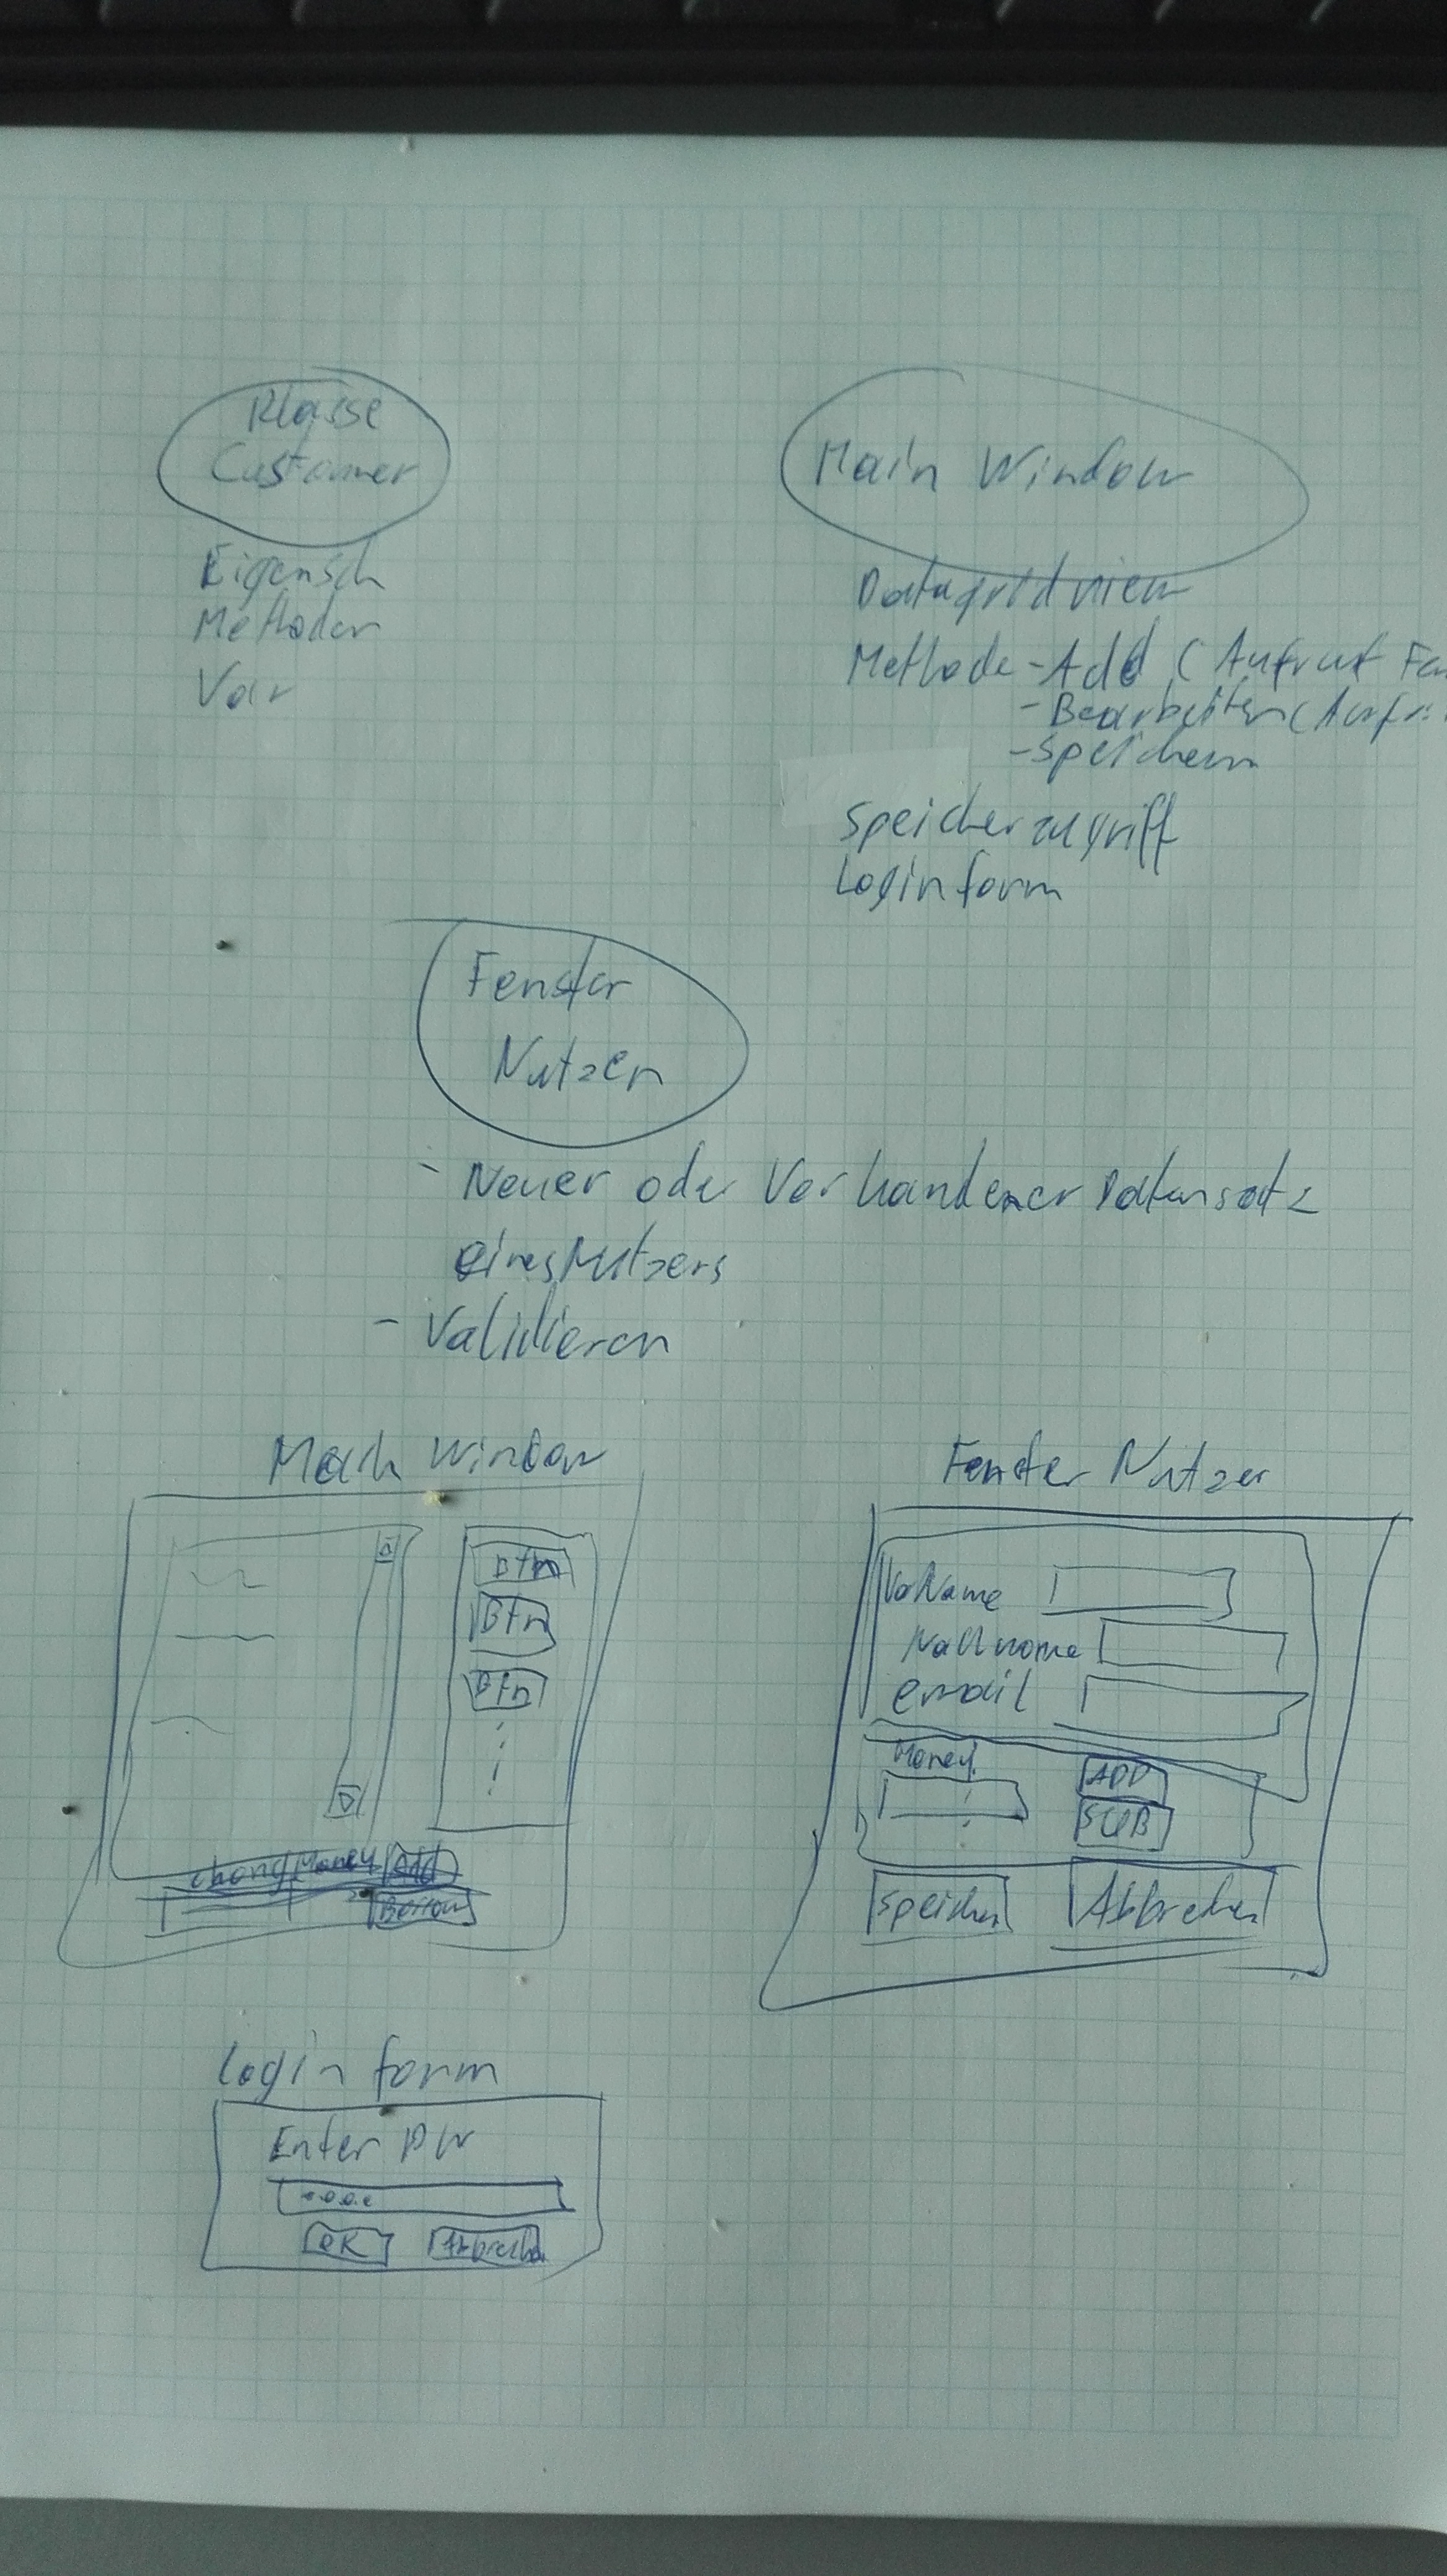 Klasse
Customer
Eigensch
Methoden
Var
Main Window
Datagridview
Methode - Add (Aufruf Fen
- Bearbeiten (Aufr
- Speichern
Speicherzugriff
Loginform
Fenster
Nutzer
- Neuer oder Vorhandener Datensatz
eines Nutzers
- Validieren
Main Window
Btn
Btn
Btn
chang Money Add
Fenster Nutzer
VorName
Nachname
email
Money
ADD
SUB
Speichern
Abbrechen
Login form
Enter PW
OK
Abbrechen